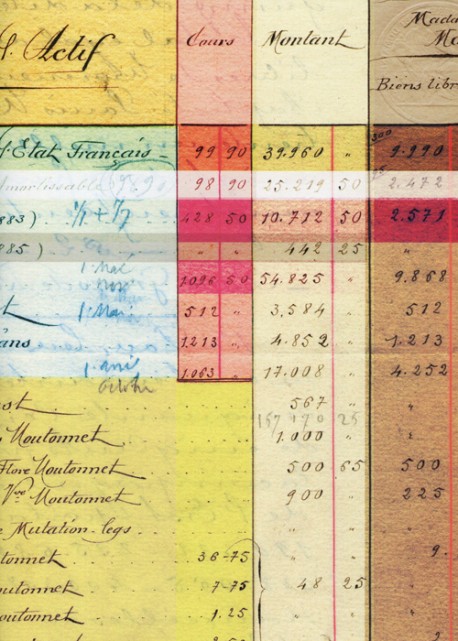 Actif Cours Montant Mada
Ma
Biens libr
300
l'Etat Français 99 90 39.960 " 9.990
Amortissable 98.90 98 90 25.219 50 2.472
883) 428 50 10.712 50 2.571
885) " " 442 25 "
1 Mai
Nov 1096 50 54.825 " 9.868
t 1 Mai 512 " 3.584 " 512
ans 1.213 " 4.852 " 1.213
1 avril 1.063 " 17.008 " 4.252
Octobre
est 567 " "
157 170 25
Moutonnet 1.000 " "
Flore Moutonnet 500 65 500
Vve Moutonnet 900 " 225
e Mutation-legs " " "
tonnet 36-75 " 9.
outonnet 7-75 48 25
outonnet 1.25 " "